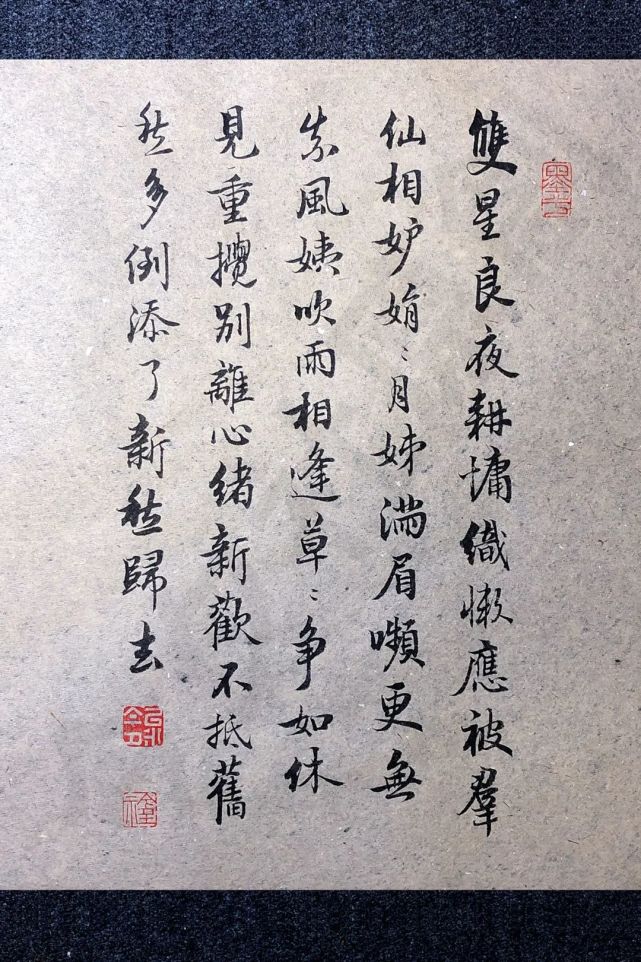 雙星良夜耕慵織懶應被羣
仙相妒娟〻月姊滿眉嚬更無
柰風姨吹雨相逢草〻爭如休
見重攪別離心緒新歡不抵舊
愁多倒添了新愁歸去